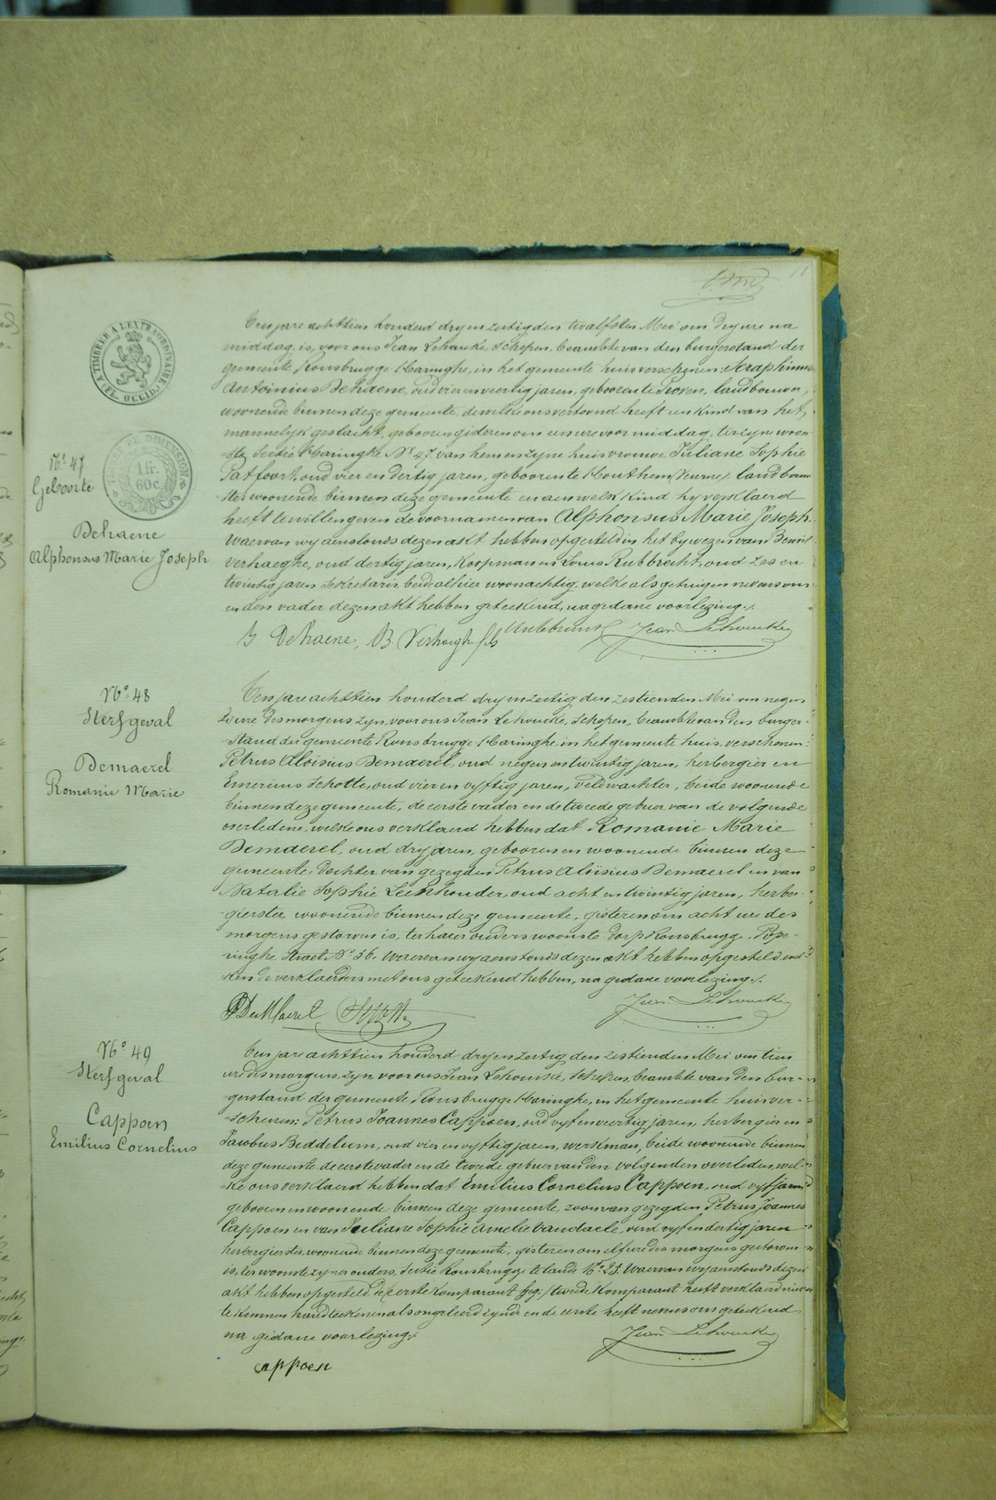 11
TIMBRE A L'EXTRAORDINAIRE
FL. OCCID.
DE DIMENSION
1 fr.
60 c.
N.° 47
Geboorte
Dehaene
Alphonsus Marie Joseph
Ten jare achttien honderd dry en zestig den twalfsten Mei om dry ure na
middag, is, voor ons Jean Lehoucke schepen, beambte van den burgerstand der
gemeente Rousbrugge-Haringhe, in het gemeente huis verschenen: Seraphinus
Antoinius Dehaene, oud vier en veertig jaren, geboren te Proven, landbouwer,
woonende binnen deze gemeente, dewelke ons vertoond heeft een kind van het
mannelyk geslacht, geboren gisteren om ure voor middag, ter zyne woon-
ste Sectie Haringhe N.° 47, van hem en zyne huisvrouwe Juliane Sophie
Patfoort, oud vier en dertig jaren, geboren te Houthem (Veurne) landbouw-
ster woonende binnen deze gemeente en aen welk kind hy verklaerd
heeft te willen geven de voornamen van Alphonsus Marie Joseph.
Waervan wy aenstonds dezen akt hebben opgesteld in het bywezen van Benoit
Verhaeghe, oud dertig jaren, koopman en Louis Rubbrecht, oud zes en
twintig jaren, Sekretaris beide alhier woonachtig, welke als getuigen nevens ons
en den vader dezen akt hebben geteekend, na gedane voorlezing.
S Dehaene, B Verhaeghe fs Jean Lehoucke
N.° 48
Sterfgeval
Demaerel
Romanie Marie
Ten jare achttien honderd dry en zestig den zestienden Mei om negen
ure des morgens zyn, voor ons Jean Lehoucke, schepen, beambte van den burger-
stand der gemeente Rousbrugge-Haringhe in het gemeente huis, verschenen:
Petrus Aloisius Demaerel, oud negen en twintig jaren, herbergier en
Emerius Schotte, oud vier en vyftig jaren, veldwachter, beide woonende
binnen deze gemeente, de eerste vader en de tweede gebuer van de volgende
overledene, welke ons verklaerd hebben dat Romanie Marie
Demaerel, oud dry jaren, geboren en woonende binnen deze
gemeente, dochter van gezegden Petrus Aloïsius Demaerel en van
Natalie Sophie, oud acht en twintig jaren, herber-
gierster woonende binnen deze gemeente, gisteren om acht ure des
morgens gestorven is, ter haer ouders woonste dorp Rousbrugge, Pope-
ringhe straet N.° 56. Waervan wy aenstonds dezen akt hebben opgesteld, wel-
ken de verklaerders met ons geteekend hebben, na gedane voorlezing.
P DeMaerel Schotte Jean Lehoucke
N.° 49
Sterfgeval
Cappoen
Emilius Cornelius
Ten jare achttien honderd dry en zestig den zestienden Mei om tien
ure des morgens, zyn voor ons Jean Lehoucke, schepen beambte van den bur-
gerstand der gemeente Rousbrugge-Haringhe, in het gemeente huis ver-
schenen: Petrus Joannes Cappoen, oud vyf en veertig jaren, herbergier en
Jacobus Beddeleem, oud vier en vyftig jaren, werkman, beide woonende binnen
deze gemeente de eerste vader en de tweede gebuer van den volgenden overleden, wel-
ke ons verklaerd hebben dat Emilius Cornelius Cappoen, oud vyf jaren
geboren en woonende binnen deze gemeente, zoon van gezegden Petrus Joannes
Cappoen en van Juliane Sophie Amelie Vandaele, oud vyf en dertig jaren
herbergierster, woonende binnen deze gemeente, gisteren om elf ure des morgens gestorven
is, ter woonste zyner ouders, Sectie Rousbrugge te lande N.° 25. Waervan wy aenstonds dezen
akt hebben opgesteld de eerste komparant tweede komparant heeft verklaerd niet
te kunnen handteekenen als ongeleerd zynde en de eerste heeft nevens ons geteekend
na gedane voorlezing.
Jean Lehoucke
Cappoen